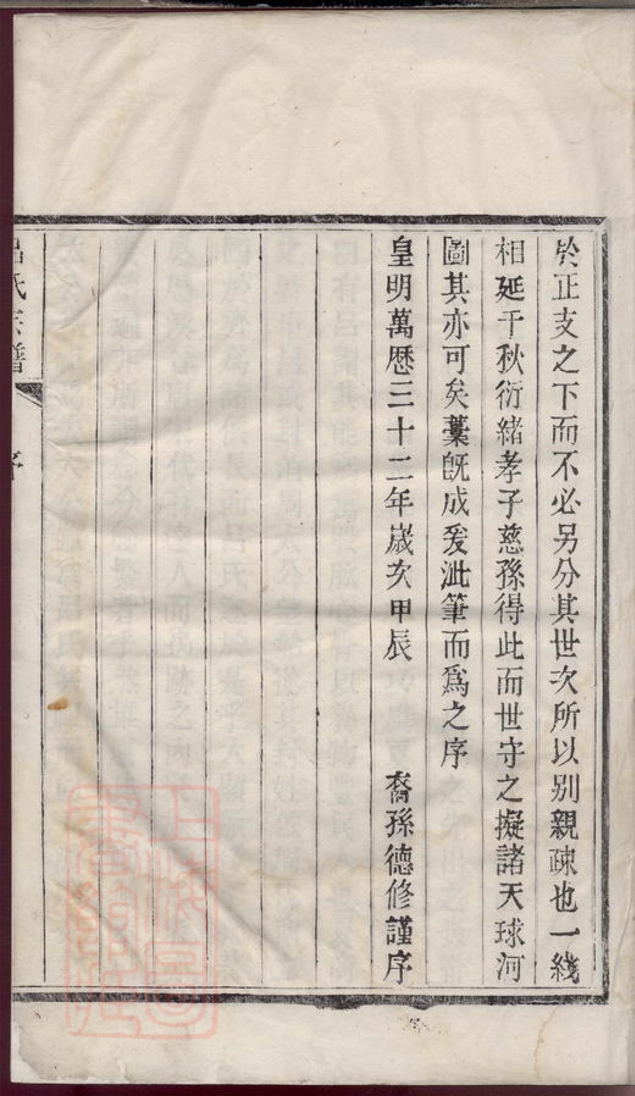 於正支之下而不必另分其世次所以別親疎也一綫
相延千秋衍緒孝子慈孫得此而世守之擬諸天球河
圖其亦可矣藁旣成爰泚筆而爲之序
皇明萬厯三十二年歲次甲辰 裔孫德修謹序
呂氏宗譜 序